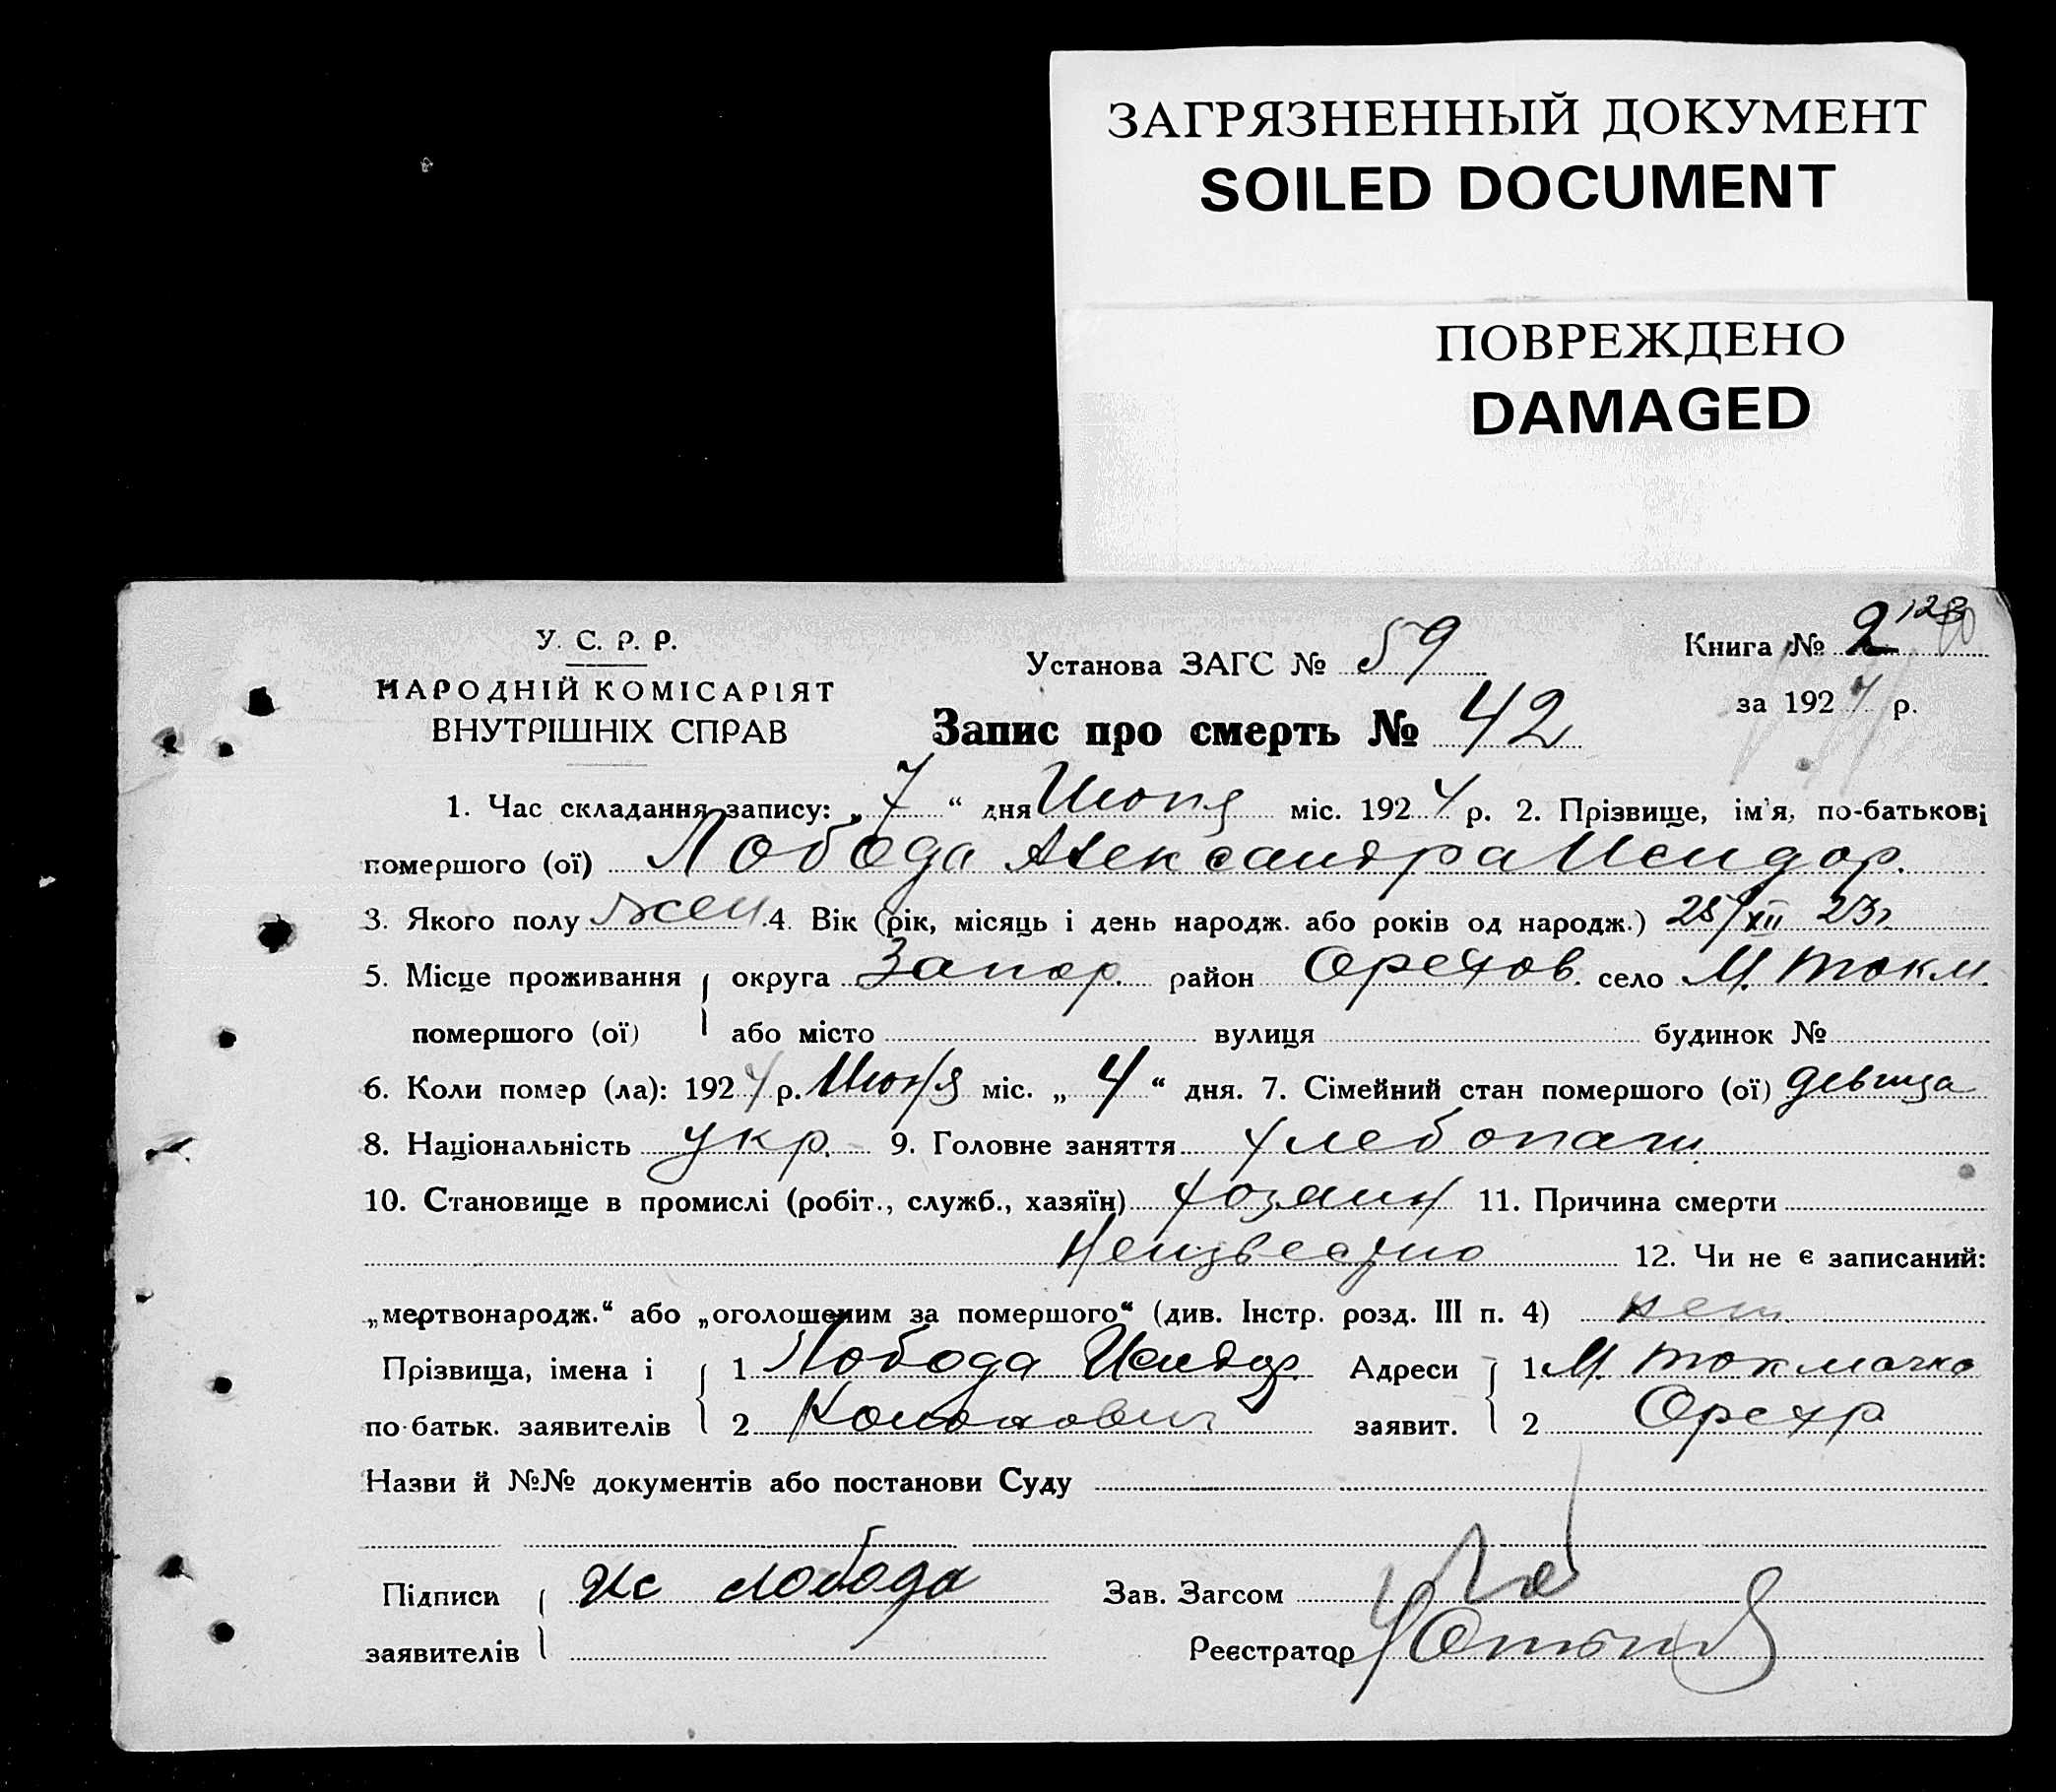 ЗАГРЯЗНЕННЫЙ ДОКУМЕНТ
SOILED DOCUMENT
ПОВРЕЖДЕНО
DAMAGED
У. С. Р. Р.
НАРОДНІЙ КОМІСАРІЯТ
ВНУТРІШНІХ СПРАВ
Установа ЗАГС № 59
Книга № 2 123
за 1924 р.
Запис про смерть № 42
1. Час складання запису: „ 7 “ дня Июня міс. 1924 р. 2. Прізвище, ім'я, по-батькові
помершого (ої) Лобода Александра Исидор.
3. Якого полу жен. 4. Вік (рік, місяць і день народж. або років од народж.) 25/XII 23 г.
5. Місце проживання округа Запор. район Орехов. село М. Токм.
помершого (ої) або місто вулиця будинок №
6. Коли помер (ла): 1924 р. Июня міс. „ 4 “ дня. 7. Сімейний стан помершого (ої) девица
8. Національність укр. 9. Головне заняття хлебопаш.
10. Становище в промислі (робіт., служб., хазяїн) хозяин 11. Причина смерти
Неизвестно 12. Чи не є записаний:
„мертвонародж.“ або „оголошеним за помершого“ (див. Інстр. розд. III п. 4) нет.
Прізвища, імена і 1 Лобода Исидор Адреси 1 М. Токмачка
по-батьк. заявителів 2 заявит. 2 Орех р
Назви й №№ документів або постанови Суду
Підписи Ис лобода Зав. Загсом
заявителів Реєстратор